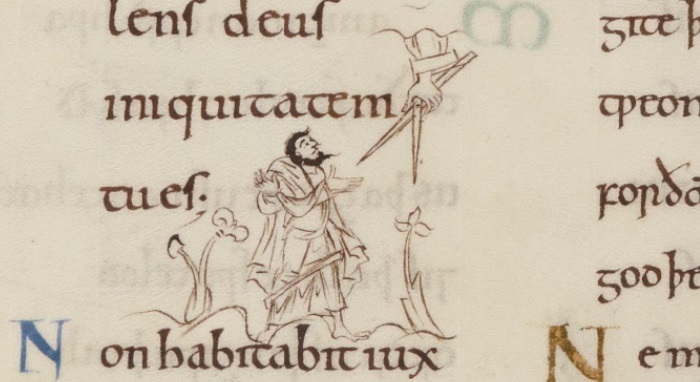 lens deus
iniquitatem
tu es.
Non habitabit iux
gite þ
tƿeon
god þe
Ne m